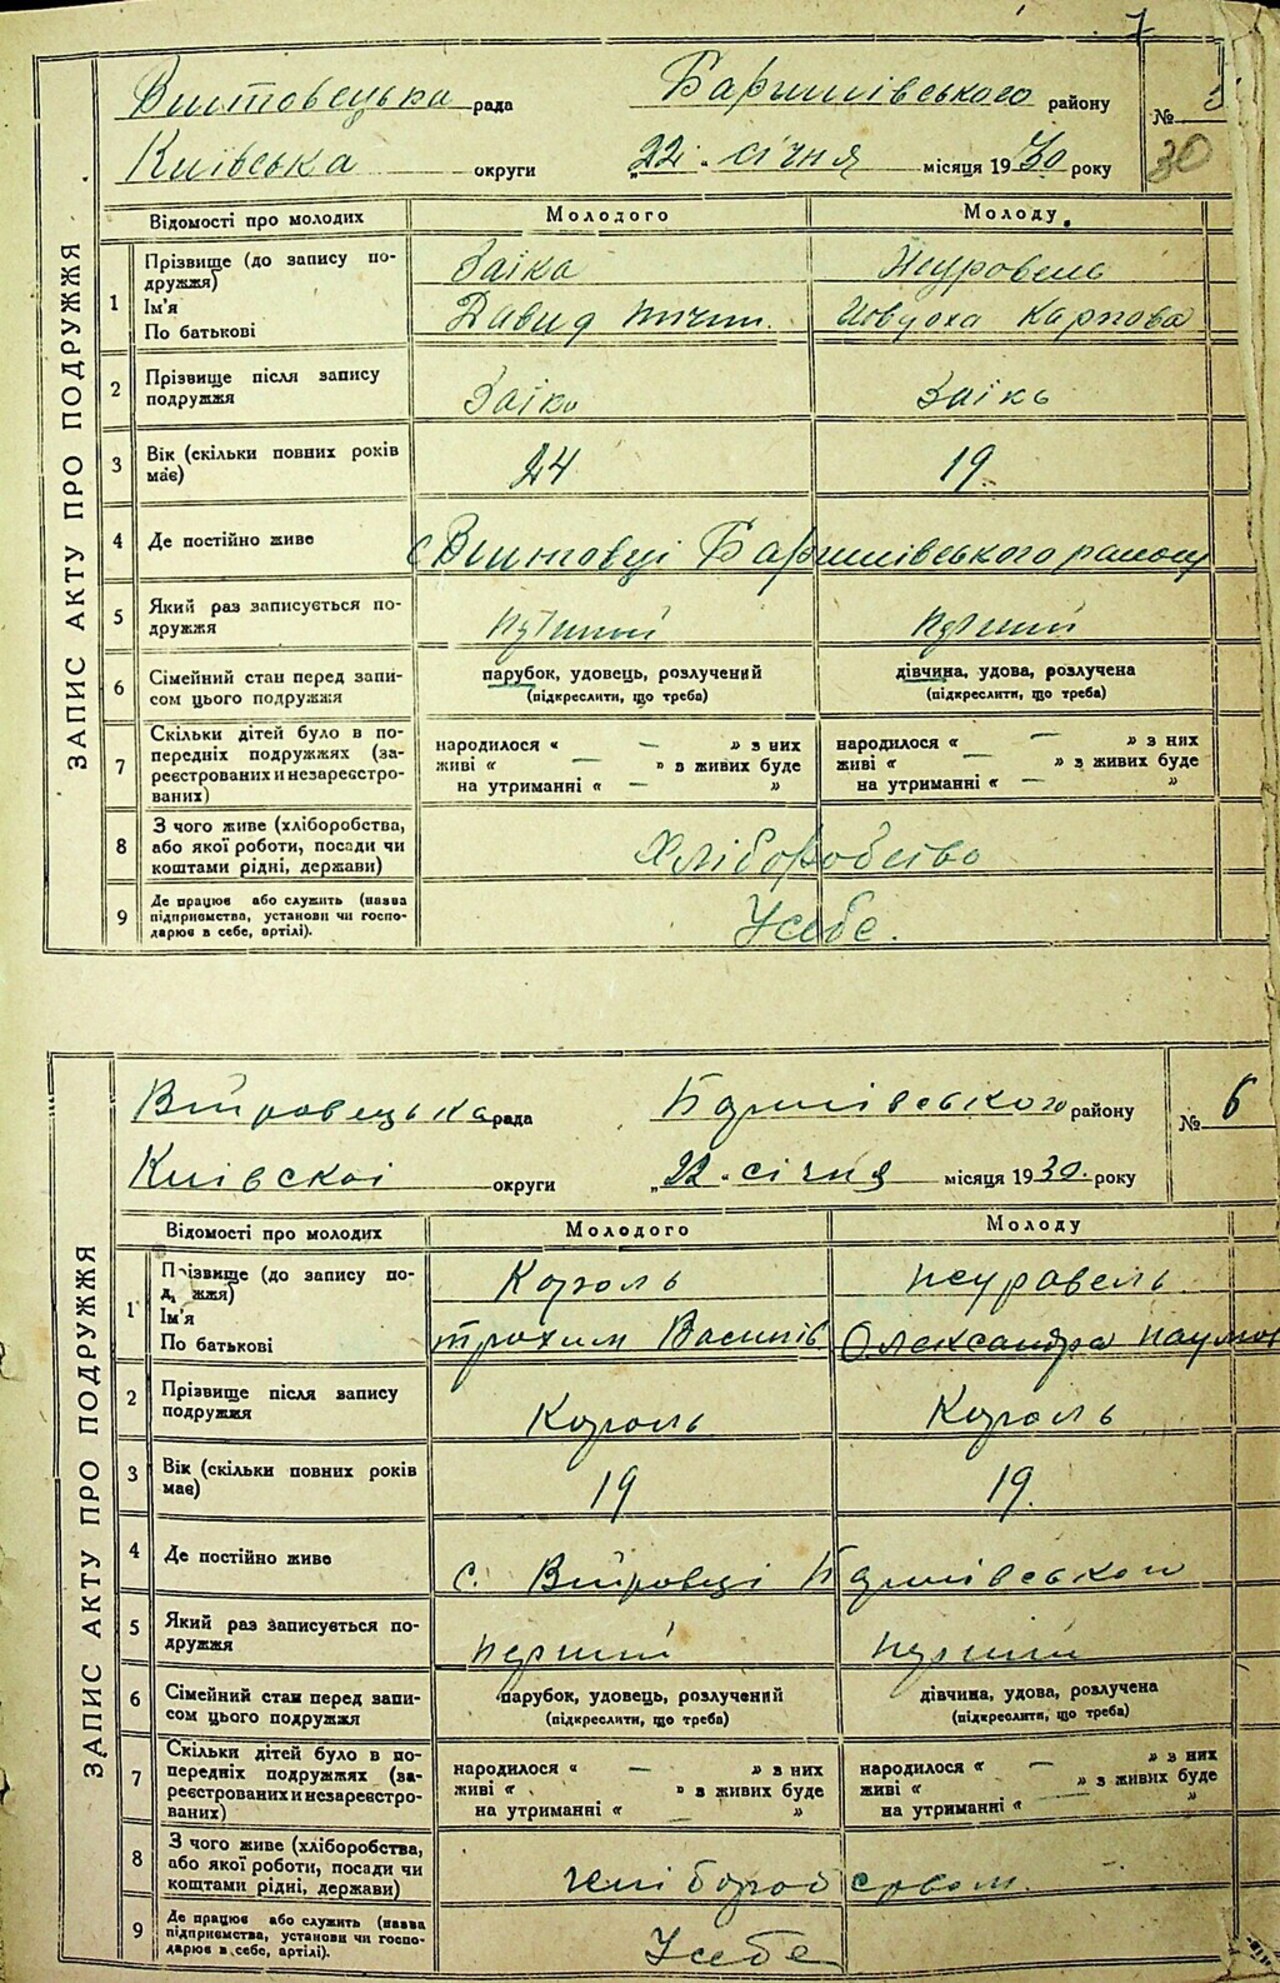 7
ЗАПИС АКТУ ПРО ПОДРУЖЖЯ
рада Баришівського району № 5
Київська округи „22" січня місяця 1930 року 30
Відомості про молодих Молодого Молоду
1 Прізвище (до запису по-
дружжя)
Ім'я
По батькові
Заїка
Давид
Журовель
Карпова
2 Прізвище після запису
подружжя
Заїка Заїка
3 Вік (скільки повних років
має)
24 19
4 Де постійно живе
с Баришівського району
5 Який раз записується по-
дружжя
перший перший
6 Сімейний стан перед запи-
сом цього подружжя
парубок, удовець, розлучений
(підкреслити, що треба)
дівчина, удова, розлучена
(підкреслити, що треба)
7 Скільки дітей було в по-
передніх подружжях (за-
реєстрованих и незареєстро-
ваних)
народилося « — » з них
живі « — » з живих буде
на утриманні « — »
народилося « — » з них
живі « — » з живих буде
на утриманні « — »
8 З чого живе (хліборобства,
або якої роботи, посади чи
коштами рідні, держави)
Хліборобство
9 Де працює або служить (назва
підприємства, установи чи госпо-
дарює в себе, артілі).
У себе.
ЗАПИС АКТУ ПРО ПОДРУЖЖЯ
рада району № 6
Київскоі округи „22" січня місяця 1930. року
Відомості про молодих Молодого Молоду
1 Прізвище (до запису по-
дружжя)
Ім'я
По батькові
Король
Трохим Василів
Журавель
Олександра Наумов
2 Прізвище після запису
подружжя
Король Король
3 Вік (скільки повних років
має)
19 19.
4 Де постійно живе
с.
5 Який раз записується по-
дружжя
перший перший
6 Сімейний стан перед запи-
сом цього подружжя
парубок, удовець, розлучений
(підкреслити, що треба)
дівчина, удова, розлучена
(підкреслити, що треба)
7 Скільки дітей було в по-
передніх подружжях (за-
реєстрованих и незареєстро-
ваних)
народилося « — » з них
живі « » з живих буде
на утриманні « — »
народилося « — » з них
живі « » з живих буде
на утриманні « — »
8 З чого живе (хліборобства,
або якої роботи, посади чи
коштами рідні, держави)
9 Де працює або служить (назва
підприємства, установи чи госпо-
дарює в себе, артілі).
У себе